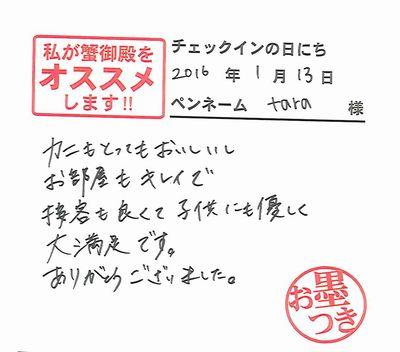 私が蟹御殿を
オススメ
します!!
チェックインの日にち
2016 年 1 月 13 日
ペンネーム tara 様
カニもとってもおいしいし
お部屋もキレイで
接客も良くて子供にも優しく
大満足です。
ありがとうございました。
お墨つき